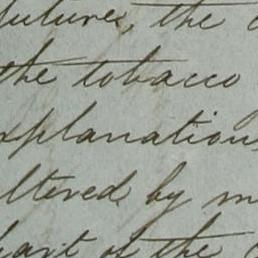 futures, the
the tobacco
explanations
ltered by m
part of the